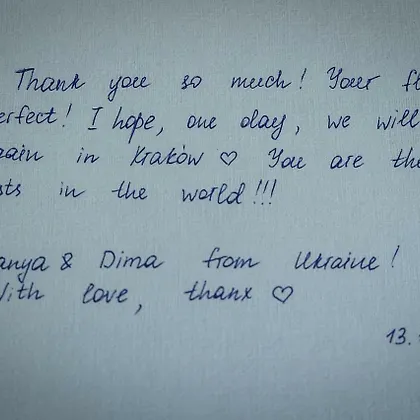 Thank you so much! Your fl
erfect! I hope, one day, we will
gain in Kraków ♡ You are the
sts in the world!!!
anya & Dima from Ukraine!
With love, thanx ♡
13.